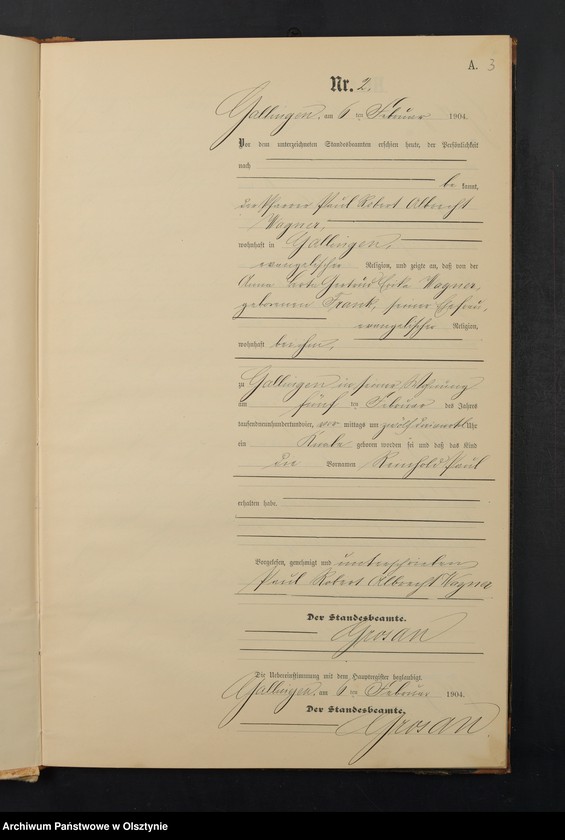 A. 3
Nr. 2.
Gallingen, am 6 ten Februar 1904.
Vor dem unterzeichneten Standesbeamten erschien heute, der Persönlichkeit
nach
be kannt,
der Pfarrer Paul Robert Albrecht
Wagner,
wohnhaft in Gallingen,
evangelischer Religion, und zeigte an, daß von der
Anna Gertrud Wagner,
geborenen Frank, seiner Ehefrau,
evangelischer Religion,
wohnhaft bei ihm,
zu Gallingen in seiner Wohnung
am fünf ten Februar des Jahres
tausendneunhundertundvier, vor mittags um zwölf dreiviertel Uhr
ein Knabe geboren worden sei und daß das Kind
die Vornamen Reinhold Paul
erhalten habe.
Vorgelesen, genehmigt und unterschrieben
Paul Robert Albrecht Wagner
Der Standesbeamte.
Grosan
Die Uebereinstimmung mit dem Hauptregister beglaubigt.
Gallingen, am 6 ten Februar 1904.
Der Standesbeamte.
Grosan
Archiwum Państwowe w Olsztynie